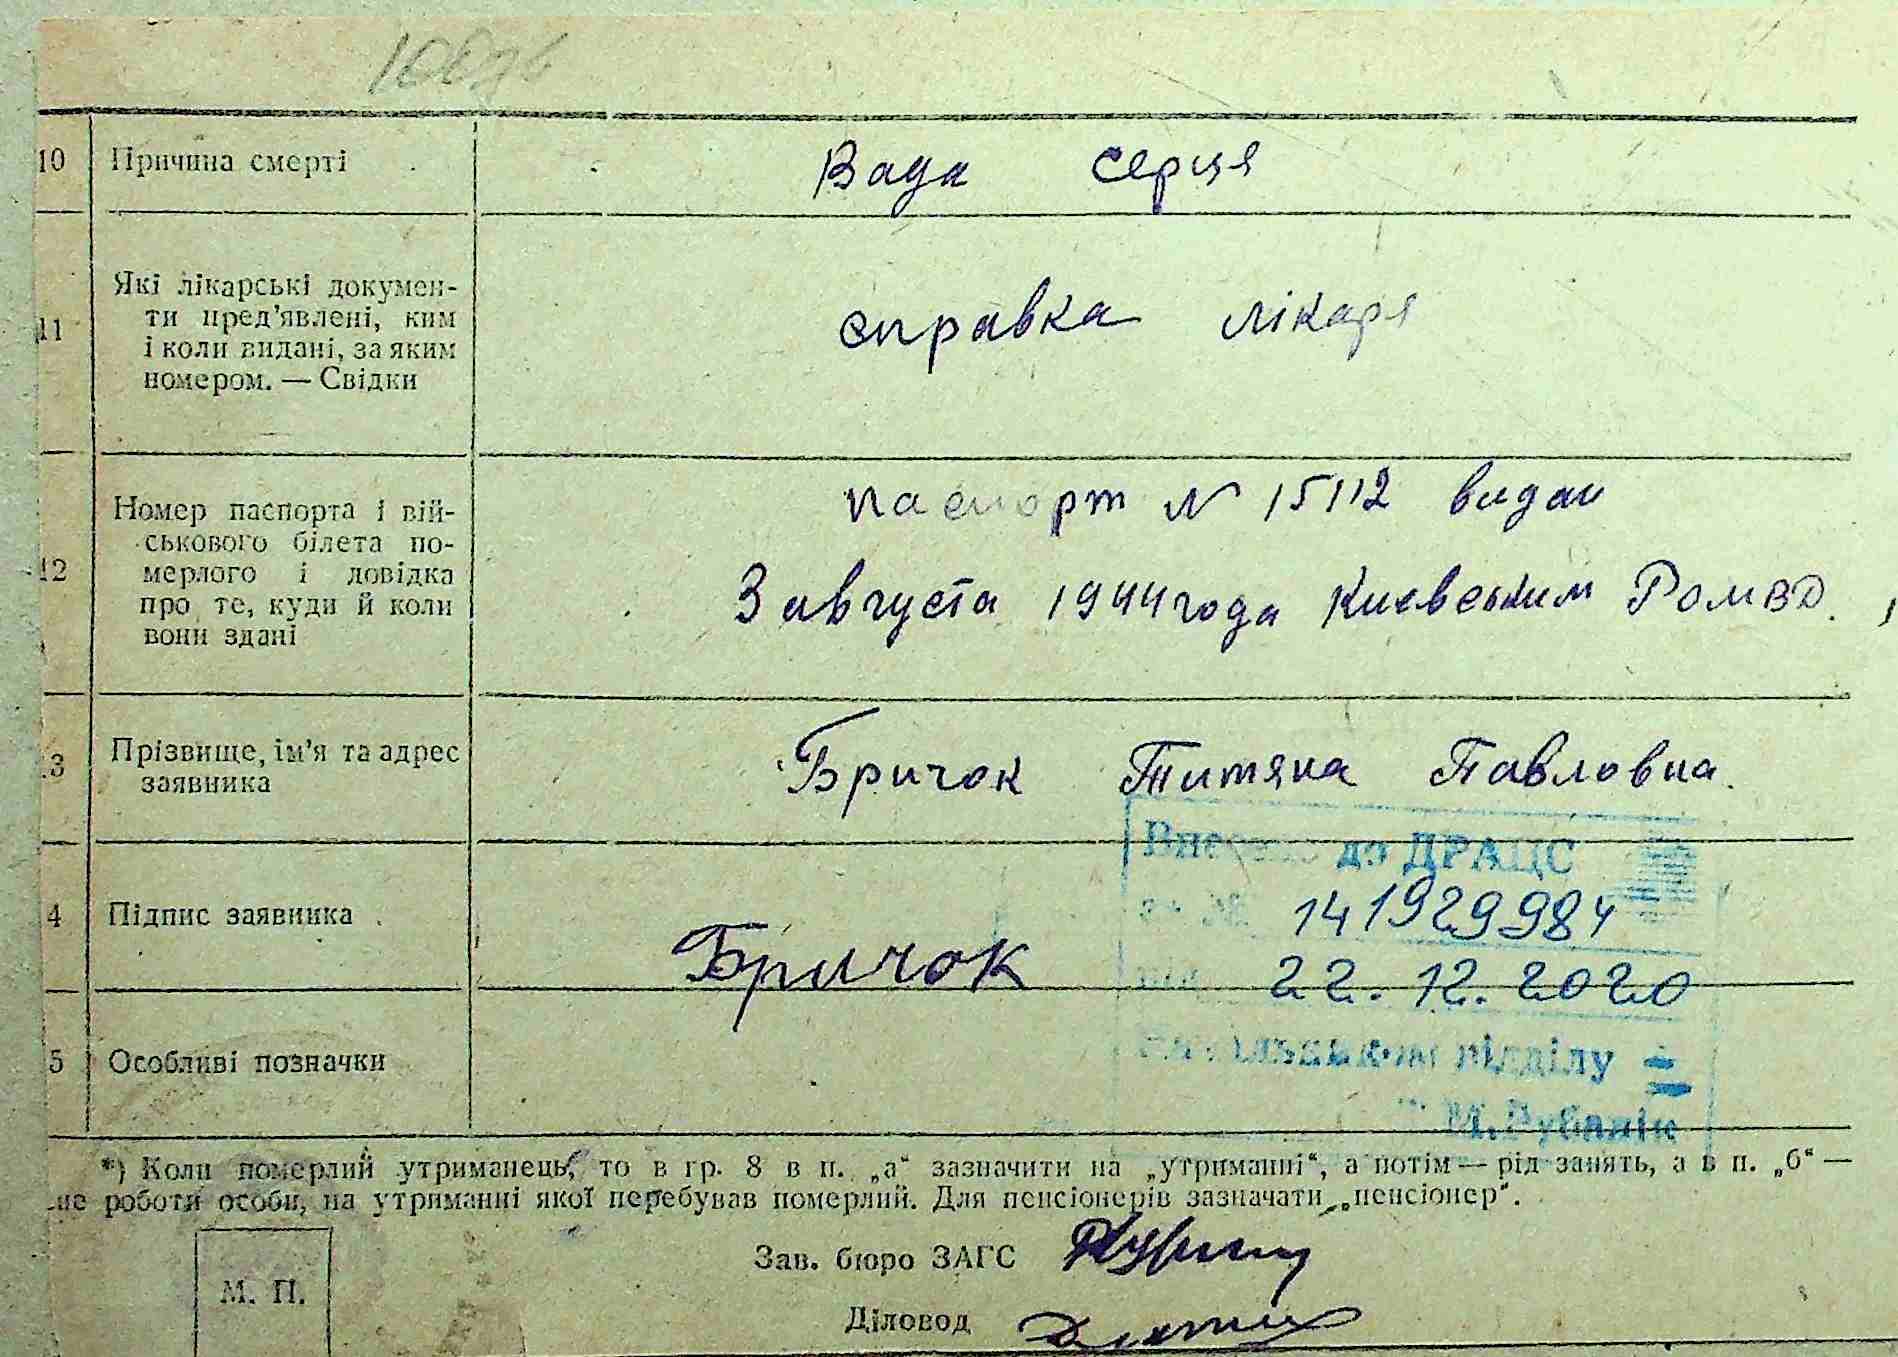 10 Причина смерті Вада серця
11 Які лікарські докумен-
ти пред'явлені, ким
і коли видані, за яким
номером. — Свідки
справка лікаря
12 Номер паспорта і вій-
ськового білета по-
мерлого і довідка
про те, куди й коли
вони здані
паспорт N 15112 видан
3 августа 1944 года Києвським РОМВД.
3 Прізвище, ім'я та адрес
заявника
Бричок Титяна Павловна.
Внесено до ДРАЦС
за № 141929984
4 Підпис заявника
Бричок
від 22.12.2020
5 Особливі позначки
відділу
М. Рубанік
*) Коли померлий утриманець, то в гр. 8 в п. „а“ зазначити на „утриманні“, а потім — рід занять, а в п. „б“ —
це роботи особи, на утриманні якої перебував померлий. Для пенсіонерів зазначати „пенсіонер“.
Зав. бюро ЗАГС
М. П.
Діловод